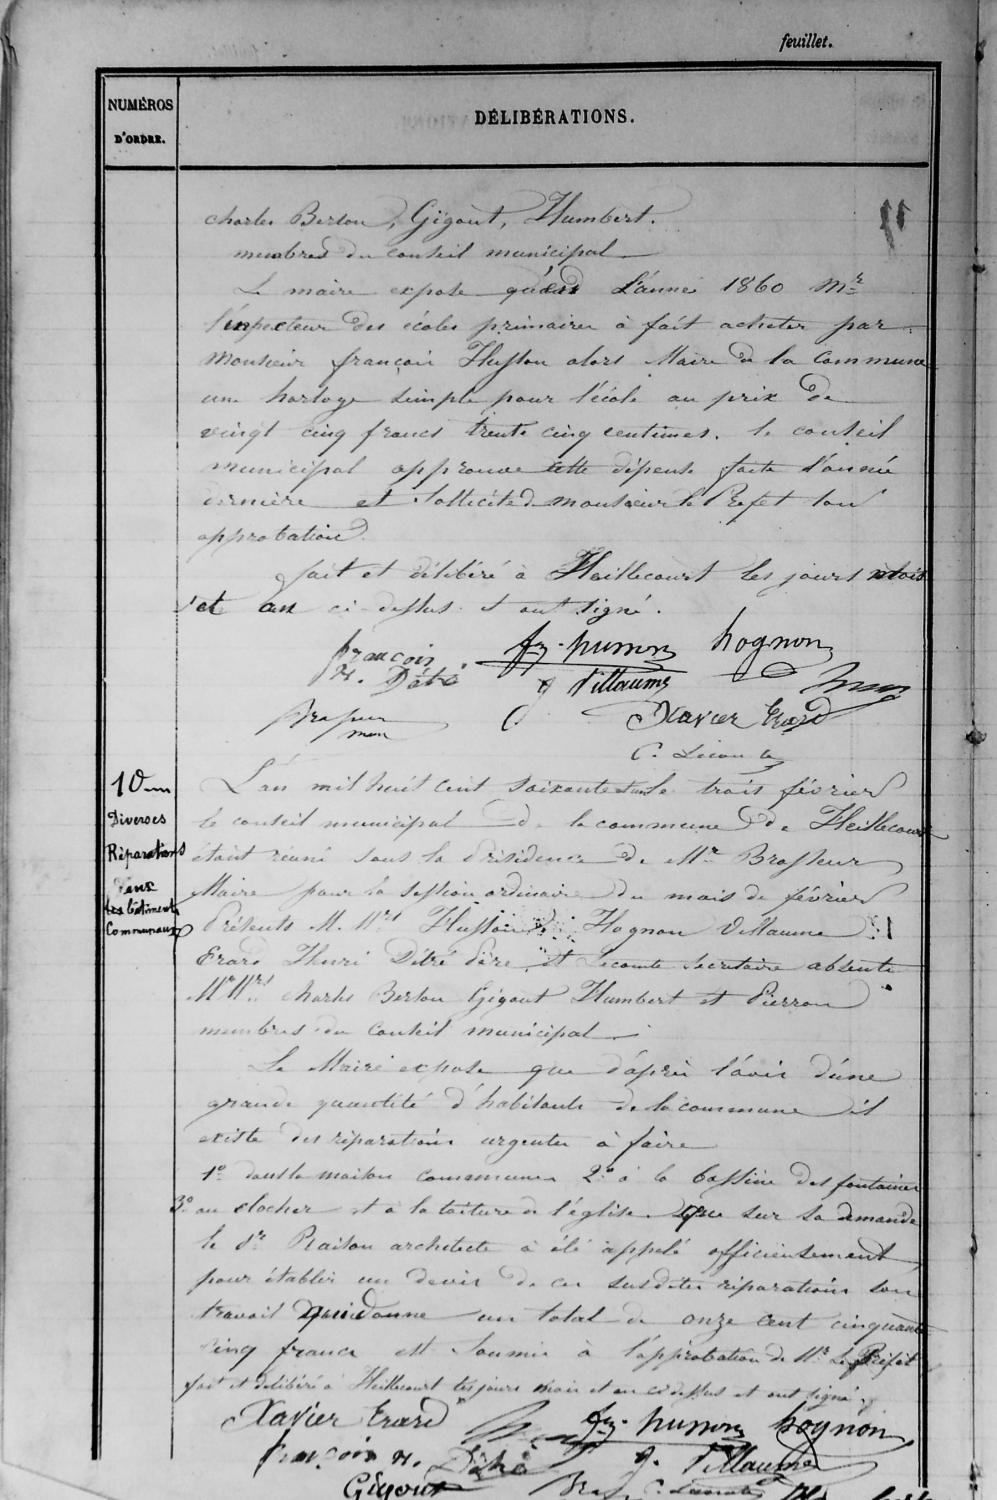 feuillet.
NUMÉROS
D'ORDRE.
DÉLIBÉRATIONS.
Charles Berton, Gigout, Humbert.
membres du conseil municipal
Le maire expose que dans L'année 1860 Mr
l'inspecteur des écoles primaires à fait acheter par
Monsieur françois Husson alors Maire de la Commune
une horloge simple pour l'école au prix de
vingt cinq francs trente cinq centimes. le conseil
municipal approuve cette dépense faite l'année
dernière et sollicite de monsieur le Préfet son
approbation.
fait et délibéré à Heillecourt les jours mois
et an ci-dessus et ont signé.
françois fz. husson hognon
H. Détré J Villaume
Brasseur
Xavier Erard
C. Lecomte
10
Diverses
Réparations
aux
bâtiments
Communaux
L'an mil huit cent soixante et un le trois février
le conseil municipal de la commune de Heillecourt
étant réuni sous la présidence de Mr Brasseur
Maire pour la session ordinaire du mois de février
Présents M. Mrs Husson Hognon Villaume
Erard Henri Détré Père et Lecomte secretaire absents
Mr Mrs Charles Berton Gigout Humbert et Pierron
membres du Conseil municipal
Le Maire expose que d'après l'avis d'une
grande quantité d'habitants de la commune il
existe des réparations urgentes à faire
1° dans la maison commune 2° à la bassine des fontaines
3° au clocher et à la toiture de l'église. que sur sa demande
le Sr Raison architecte à été appelé officieusement
pour établir un devis de ces susdites réparations son
travail qui donne un total de onze cent cinquante
cinq francs est soumis à l'approbation de Mr Le Préfet
fait et délibéré à Heillecourt les jours mois et an ci dessus et ont signé
Xavier Erard fz. husson hognon
françois H. Détré J. Villaume
Gigout C. Lecomte